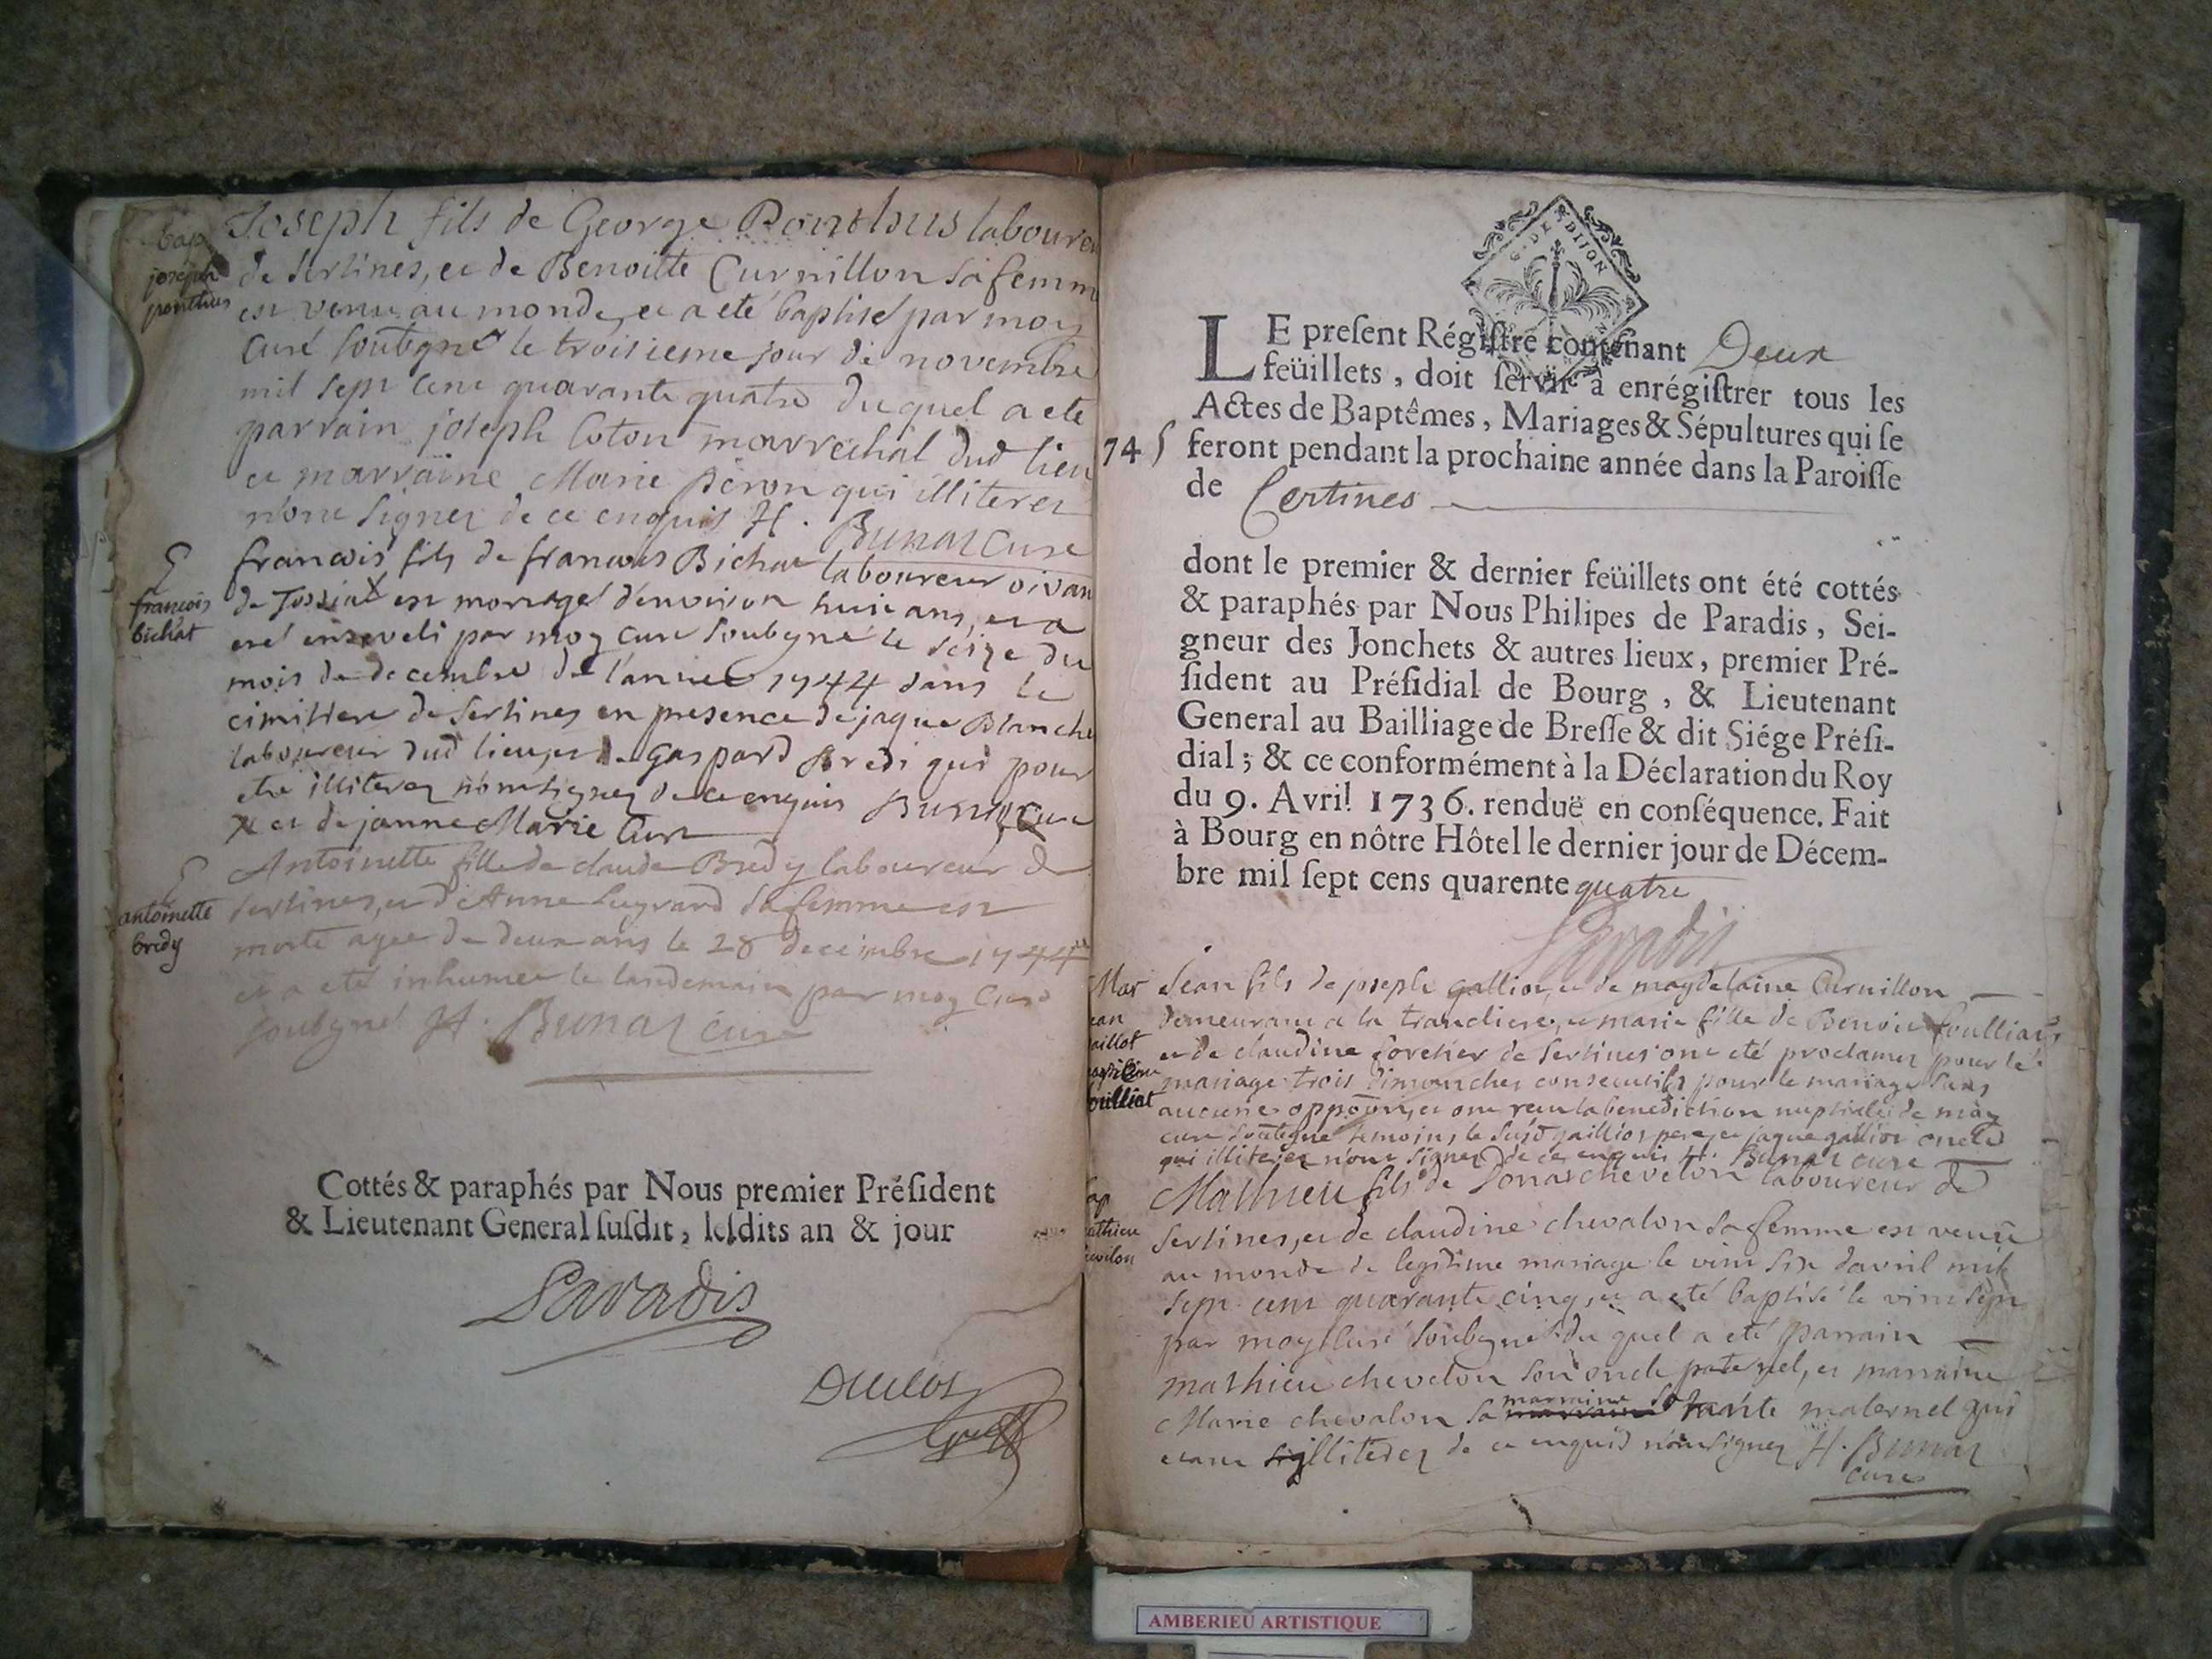 bap
joseph
ponthus
Joseph fils de George Ponthus laboure
de Sertines, et de Benoitte Curnillon sa femm
est venu au monde, et a eté baptisé par moy
Curé soubgné le troisieme jour de novembre
mil sept cent quarante quatre duquel a ete
parrain joseph Coton marrechal dud lieu
et marraine Marie Peron qui illiterez
n'ont signez de ce enquis H. Bunaz Curé
françois
bichat
francois fils de francois Bichat laboureur vivan
de Tossiat x est mort agé d'environ huit ans, et a
eté enseveli par moy curé soubgné le seize du
mois de decembre de l'année 1744 dans le
cimittiere de Sertines en presence de jaque Blanche
laboureur dud lieu, et de Gaspard Bredi qui pour
etre illiterez n'ont signez de ce enquis Bunaz Curé
x et de janne Marie Curt
antoinette
bredy
Antoinette fille de claude Bredy laboureur de
Sertines, et d'Anne Sugrand sa femme est
morte agee de deux ans le 28 decembre 1744
et a eté inhumee le landemain par moy Curé
soubgné H. Bunaz curé
Cottés & paraphés par Nous premier Préſident
& Lieutenant General ſuſdit, leſdits an & jour
Paradis
Duclos
G. DE DIJON
LE preſent Régiſtre contenant Deux
feüillets, doit ſervir à enrégiſtrer tous les
Actes de Baptêmes, Mariages & Sépultures qui ſe
745 feront pendant la prochaine année dans la Paroiſſe
de Certines
dont le premier & dernier feüillets ont été cottés
& paraphés par Nous Philipes de Paradis, Sei-
gneur des Jonchets & autres lieux, premier Pré-
ſident au Préſidial de Bourg, & Lieutenant
General au Bailliage de Breſſe & dit Siége Préſi-
dial; & ce conformément à la Déclaration du Roy
du 9. Avril 1736. renduë en conſéquence. Fait
à Bourg en nôtre Hôtel le dernier jour de Décem-
bre mil ſept cens quarente quatre
Paradis
Mar
ean
aillot
ouilliat
Jean fils de joseph galliot, et de magdelaine Curnillon
demeurant a la tranchiere, et marie fille de Benoit foulliat
et de claudine foretier de Sertines ont eté proclamez pour le
mariage trois dimanches consecutifs pour le mariage sans
aucune oppôon, et ont reçu la benediction nuptiale de moy
curé soubgné temoins le susd gailliot pere, et jaque galliot oncle
qui illiterez n'ont signez de ce enquis H. Bunaz curé
ap
athieu
evelon
Mathieu fils de Lonar chevelon laboureur de
Sertines, et de claudine chevalon sa femme est venu
au monde de legitime mariage le vint six d'avril mil
sept cent quarante cinq, et a eté baptisé le vint sept
par moy Curé soubgné du quel a eté parrain
mathieu chevelon son oncle paternel, et marraine
Marie chevalon sa marraine sa tante maternel qui
etant illiterez de ce enquis n'ont signez H. Bunaz
curé
AMBERIEU ARTISTIQUE